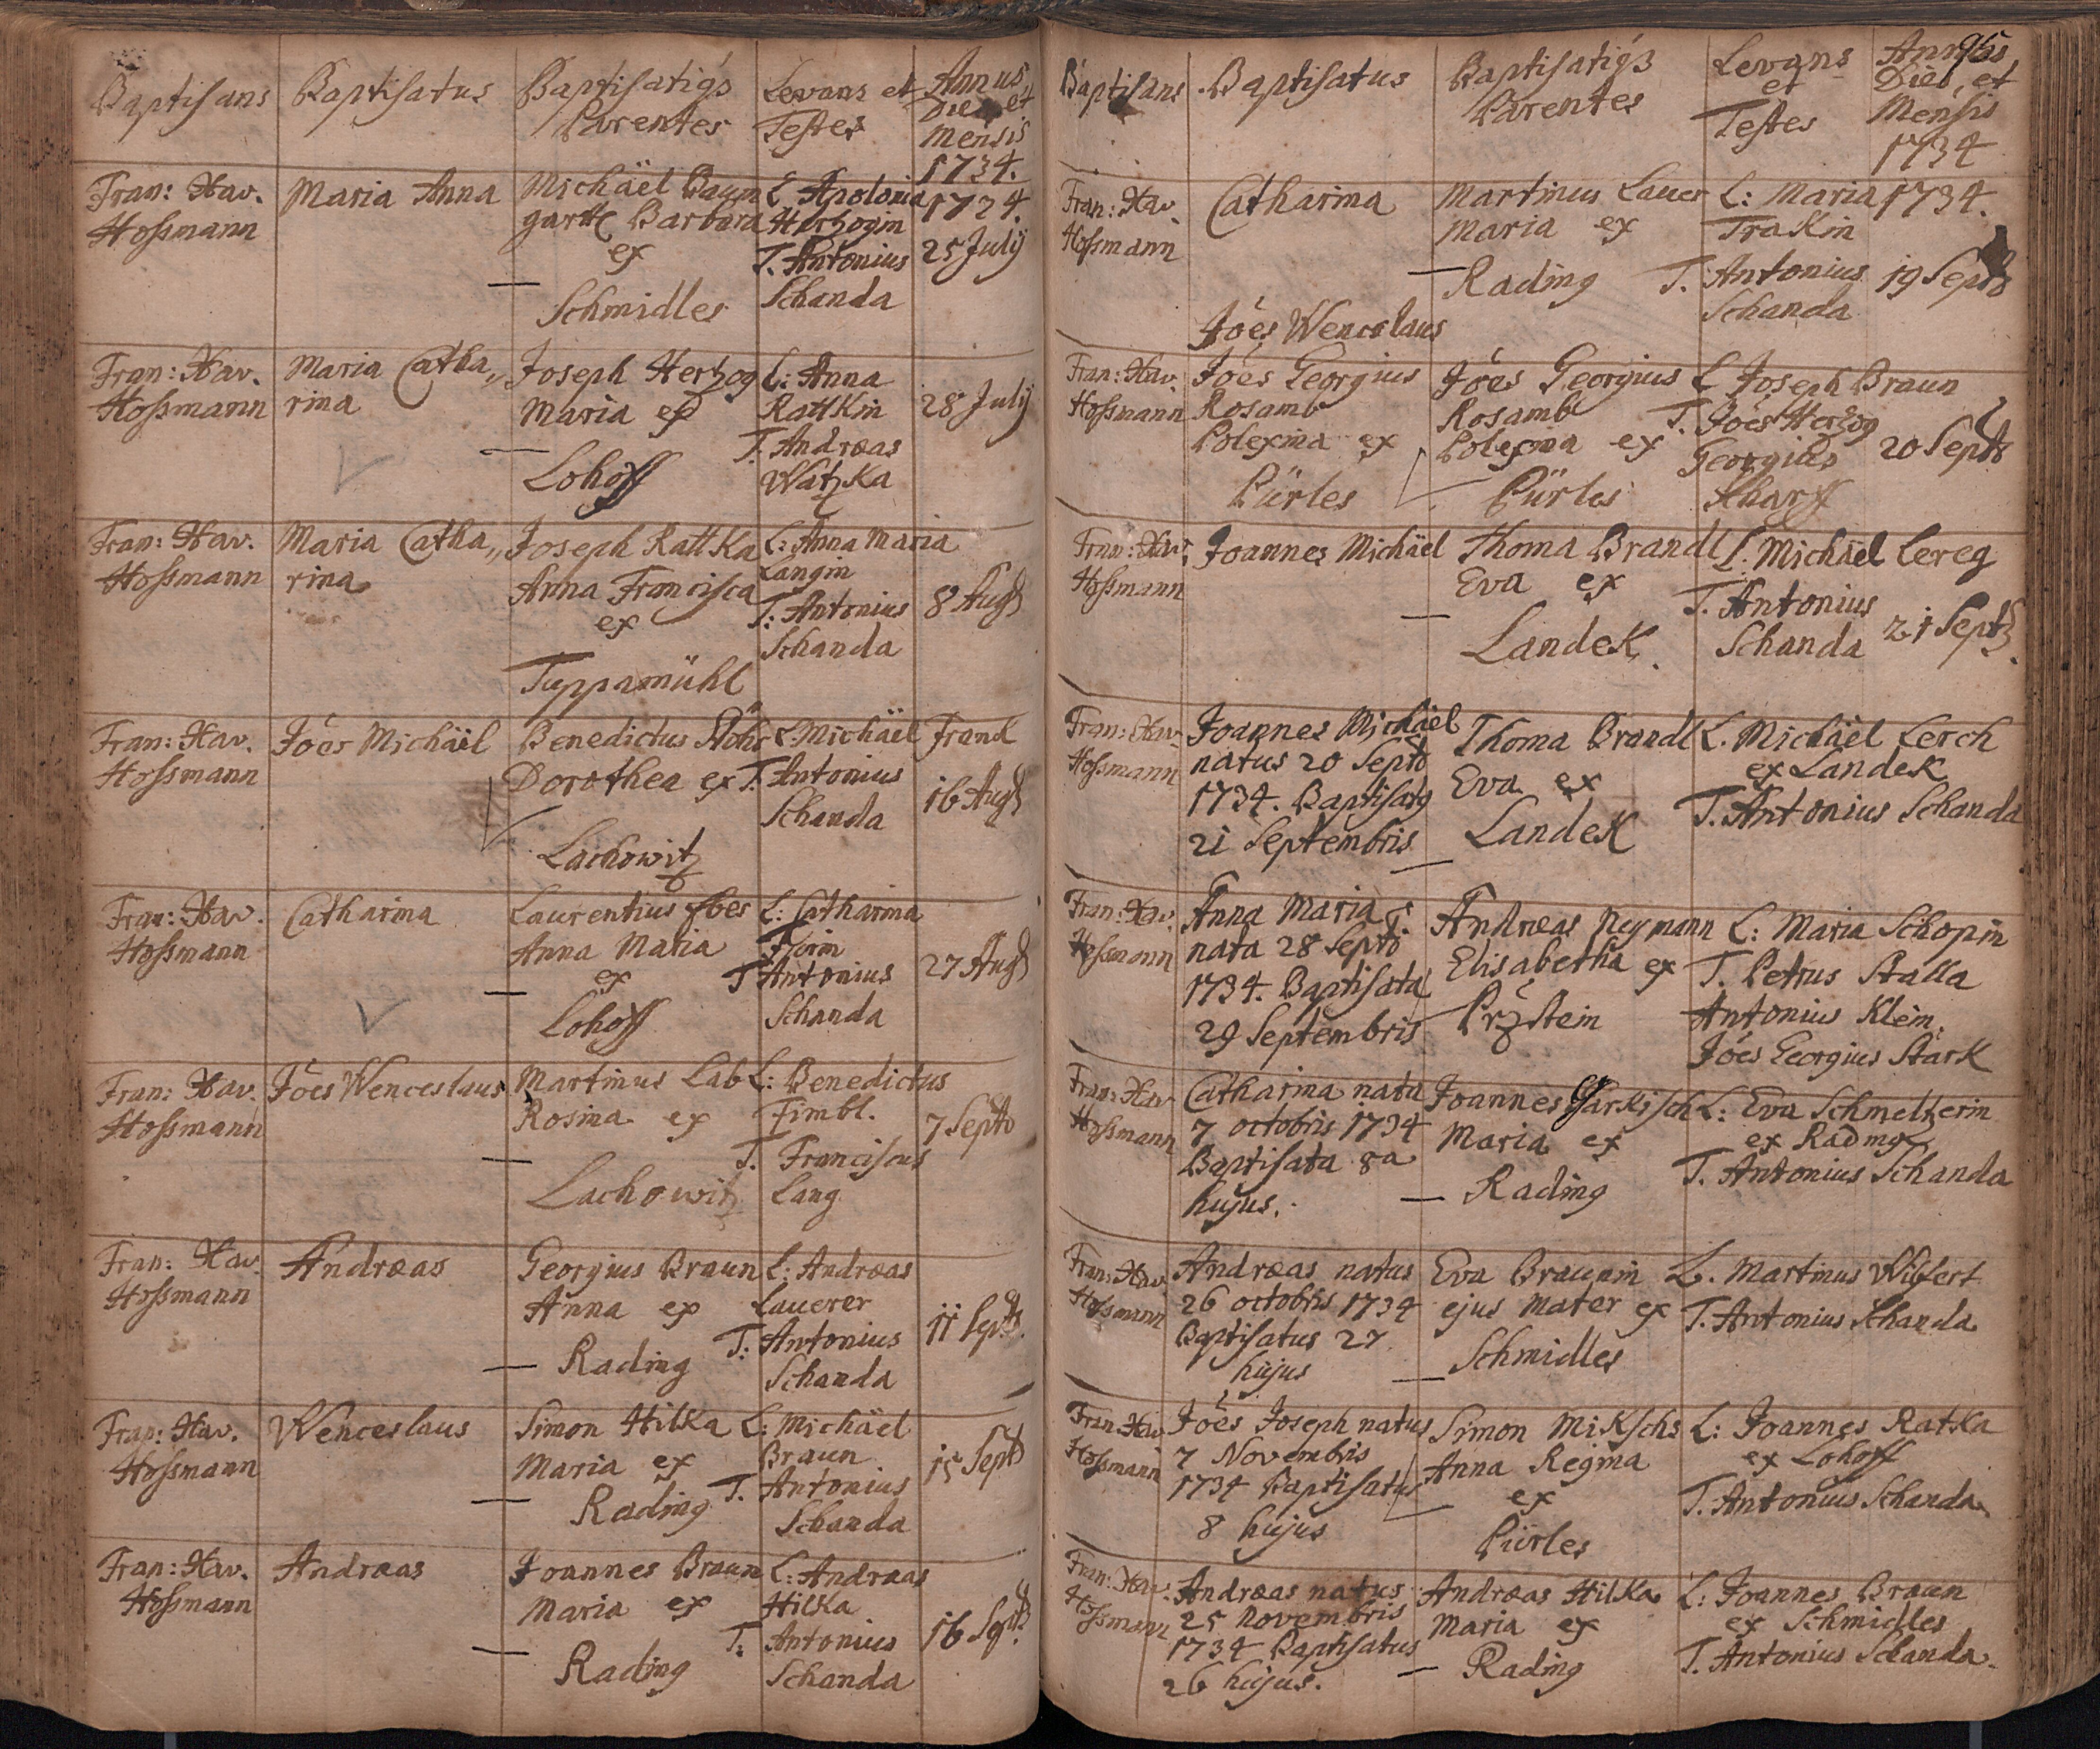 Baptisans
Baptisatus
Baptisatiq's
Parentes
Levans et
Testes
Annus
Dies et
Mensis
1734.
Fran: Xav.
Hossmann
Maria Anna
Michäel Baum
gartl Barbara
ex
Schmidles
L Apolonia
Hertzogin
T. Antonius
Schanda
1734.
25 Julij
Fran: Xav.
Hossmann
Maria Catha„
rina
Joseph Hertzog
Maria ex
Lohoff
L: Anna
Rattkin
T. Andreas
Watzka
28 Julij
Fran: Xav.
Hossmann
Maria Catha„
rina
Joseph Rattka
Anna Francisca
ex
Tuppamühl
L: Anna Maria
Langin
T: Antonius
Schanda
8 Aug
Fran: Xav.
Hossmann
Jöes Michäel
Benedictus Stöhr
Dorothea ex
Lachowitz
L Michäel Frank
T. Antonius
Schanda
16 Aug
Fran: Xav.
Hossmann
Catharina
Laurentius
Anna Maria
ex
Lohoff
L: Catharina
T Antonius
Schanda
27 Aug
Fran: Xav.
Hossmann
Jöes Wenceslaus
Martinus Lab
Rosina ex
Lachowitz
L: Benedictus
Fimbl.
T. Franciscus
Lang
7 Sept
Fran: Xav.
Hossmann
Andreas
Georgius Braun
Anna ex
Rading
L: Andreas
Lauerer
T: Antonius
Schanda
11 Sept
Fran: Xav.
Hossmann
Wenceslaus
Simon Hilka
Maria ex
Rading
L: Michäel
Braun
T. Antonius
Schanda
15 Sept
Fran: Xav.
Hossmann
Andreas
Joannes Braun
Maria ex
Rading
L: Andreas
Hilka
T: Antonius
Schanda
16 Sept
Baptisans
Baptisatus
Baptisatiq's
Parentes
Levans
et
Testes
Annus
Dies, et
Mensis
1734
Fran: Xav.
Hossmann
Catharina
Martinus Lauer
Maria ex
Rading
L: Maria
Trakin
T. Antonius
Schanda
1734.
19 Sept
Jöes Wenceslaus
Fran: Xav.
Hossmann
Jöes Georgius
Rosamb
Polexina ex
Pürles
Jöes Georgius
Rosamb
Polexina ex
Pürles
L Joseph Braun
T. Jöes Hertzog
Georgius
Scharff
20 Sept
Fran: Xav:
Hossmann
Joannes Michäel
Thoma Brandl
Eva ex
Landek.
L: Michäel Lereg
T. Antonius
Schanda
21 Sept
Fran: Xav.
Hossmann
Joannes Michäel
natus 20 Sept
1734. Baptisatq
21 Septembris
Thoma Brandl
Eva ex
Landek
L. Michäel Lerch
ex Landek
T. Antonius Schanda
Fran: Xav.
Hossmann
Anna Maria
nata 28 Sept
1734. Baptisata
29 Septembris
Andreas Neymann
Elisabetha ex
Przstein
L: Maria Schopin
T. Petrus Stalla
Antonius Klein.
Jöes Georgius Stark
Fran: Xav
Hossmann
Catharina nata
7 octobris 1734
Baptisata 8a
hujus.
Joannes Garkisch
Maria ex
Rading
L: Eva Schmeltzerin
ex Rading
T. Antonius Schanda
Fran: Xav.
Hossmann
Andreas natus
26 octobris 1734
Baptisatus 27
hujus
Eva Braunin
ejus Mater ex
Schmidles
L. Martinus Wilfert
T. Antonius Schanda
Fran: Xav
Hossmann
Jöes Joseph natus
7 Novembris
1734 Baptisatus
8 hujus
Simon Mikschs
Anna Regina
ex
Pürles
L: Joannes Ratka
ex Lohoff
T. Antonius Schanda
Fran: Xav.
Hossmann
Andreas natus
25 Novembris
1734 Baptisatus
26 hujus.
Andreas Hilka
Maria ex
Rading
L: Joannes Braun
ex Schmidles
T. Antonius Schanda